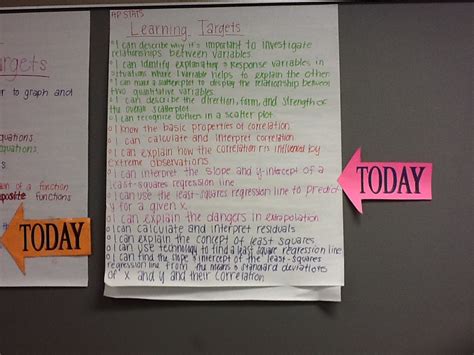 AP STATS
Learning Targets
I can describe why it's important to investigate
relationships between variables
I can identify explanatory & response variables in
situations where 1 variable helps to explain the other
I can make a scatterplot to display the relationship between
two quantitative variables
I can describe the direction, form, and strength of
the overall scatterplot
I can recognize outliers in a scatter plot
I know the basic properties of correlation
I can calculate and interpret correlation
I can explain how the correlation r is influenced by
extreme observations
I can interpret the slope and y-intercept of a
least-squares regression line
I can use the least-squares regression line to predict
y for a given x.
I can explain the dangers in extrapolation
I can calculate and interpret residuals
I can explain the concept of least squares
I can use technology to find a least square regression line
I can find the slope & intercept of the least-squares
regression line from the means & standard deviations
of x and y and their correlation
TODAY
argets
r to graph and
quations.
quations.
on of a function
posite functions
TODAY